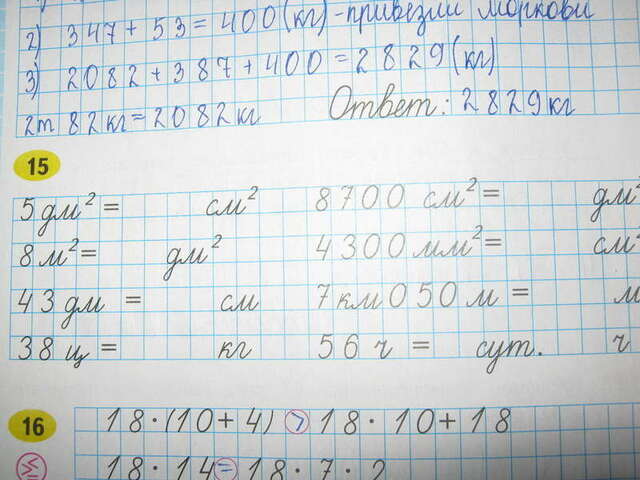 2) 347+53=400(кг)-привезли моркови
3) 2082+387+400=2829(кг)
2т 82кг=2082кг Ответ: 2829кг
15
5 дм²= см² 8700 см²= дм²
8 м²= дм² 4300 мм²= см²
43 дм = см 7 км 050 м = м
38 ц = кг 56 ч = сут. ч
16
18·(10+4) > 18·10+18
18·14=18·7·2